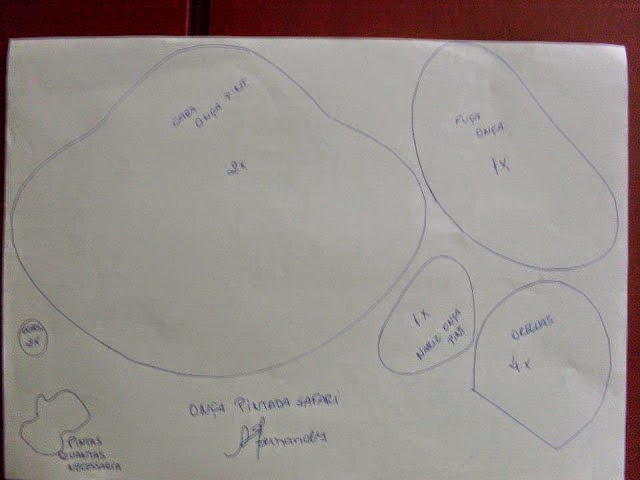 CARA
ONÇA PINT
2x
FUÇA
ONÇA
1X
1X
NARIZ ONÇA
PINT
ORELHAS
4x
2x
PINTAS
QUANTAS
NECESSARIA
ONÇA PINTADA SAFARI
Fernandes